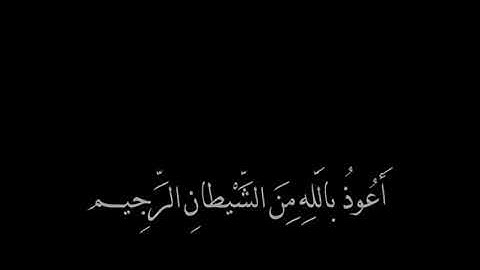 أَعُوذُ بِاللَّهِ مِنَ الشَّيْطَانِ الرَّجِيـمِ